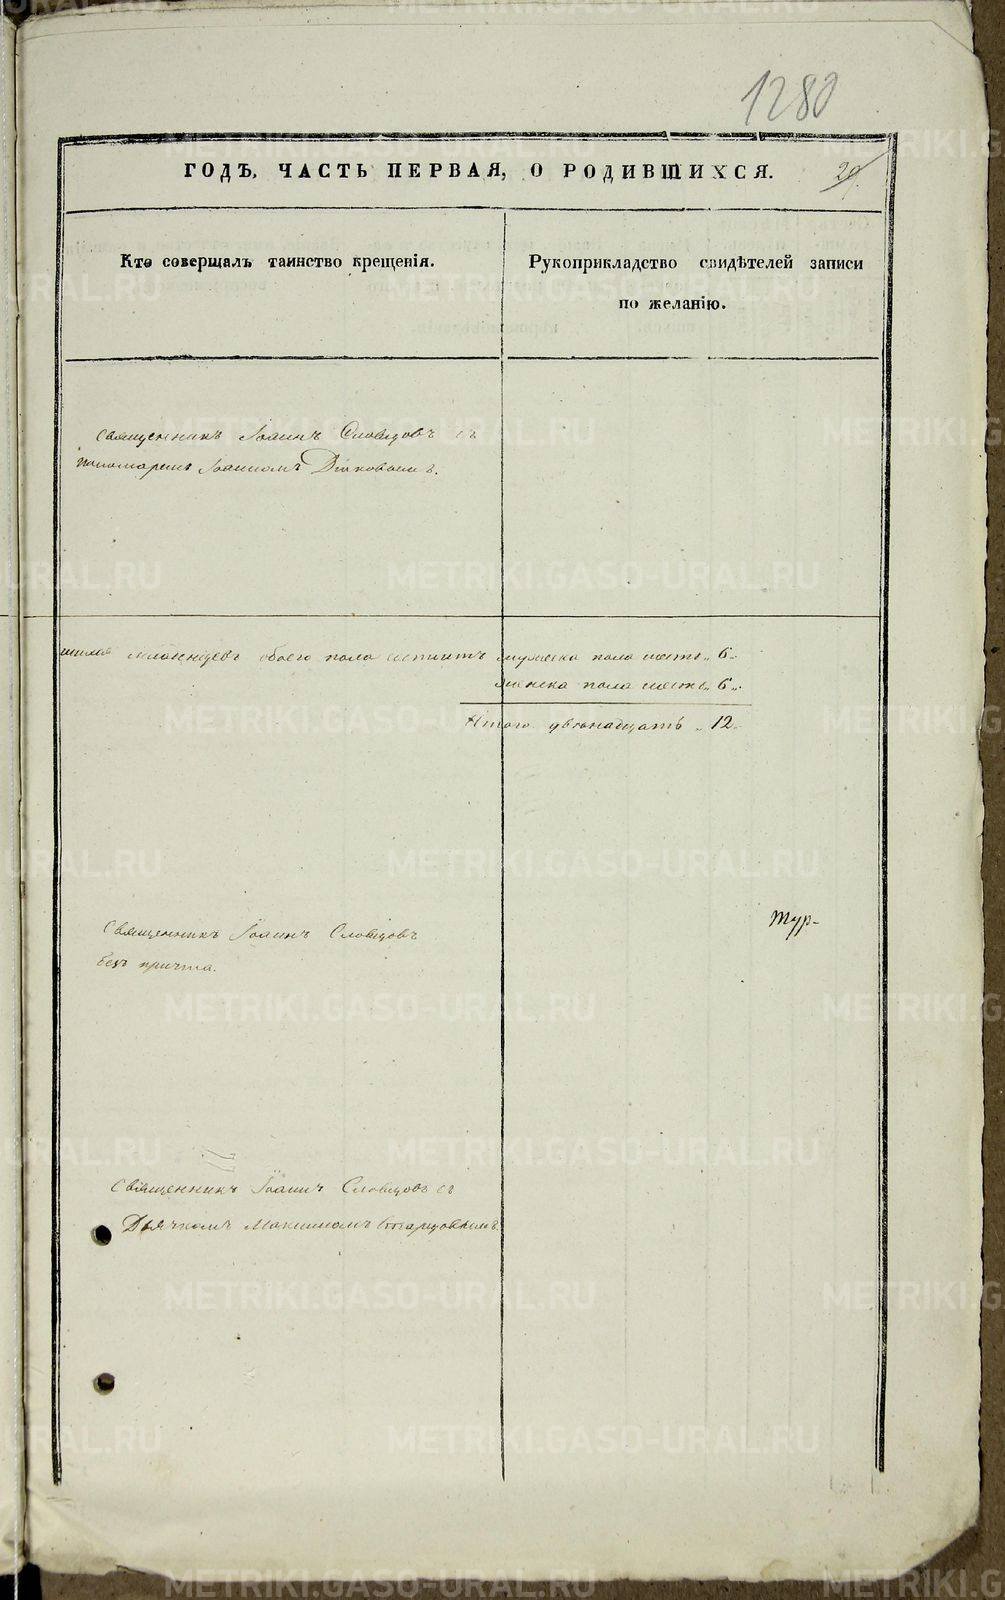 1280
ГОДЪ, ЧАСТЬ ПЕРВАЯ, О РОДИВШИХСЯ.
29.
Кто совершалъ таинство крещенія.
Рукоприкладство свидѣтелей записи
по желанію.
Священникъ Іоаннъ Словцовъ съ
пономаремъ Іоанномъ
младенцевъ обоего пола мужеска пола шесть „6„.
женска пола шесть „6„.
Итого двенадцать „12.
Священникъ Іоаннъ Словцовъ
безъ причта.
Тур-
Священникъ Іоаннъ Словцовъ съ
Дьячкомъ Максимомъ Стардовымъ.
METRIKI.GASO-URAL.RU